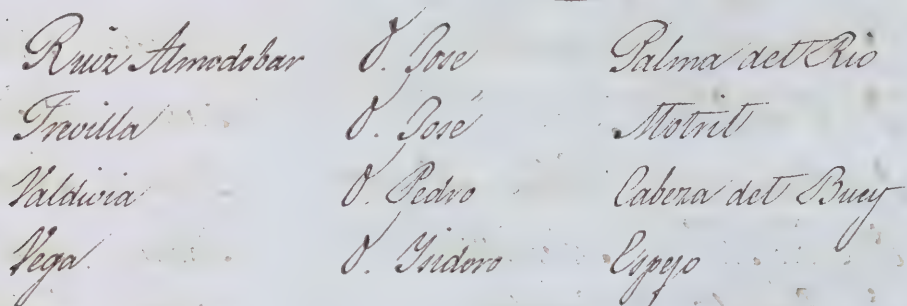 Ruiz Almodobar D. Jose Palma del Rio
Trevilla D. José Motril
Valdivia D. Pedro Cabeza del Buey
Vega D. Ysidoro Espejo